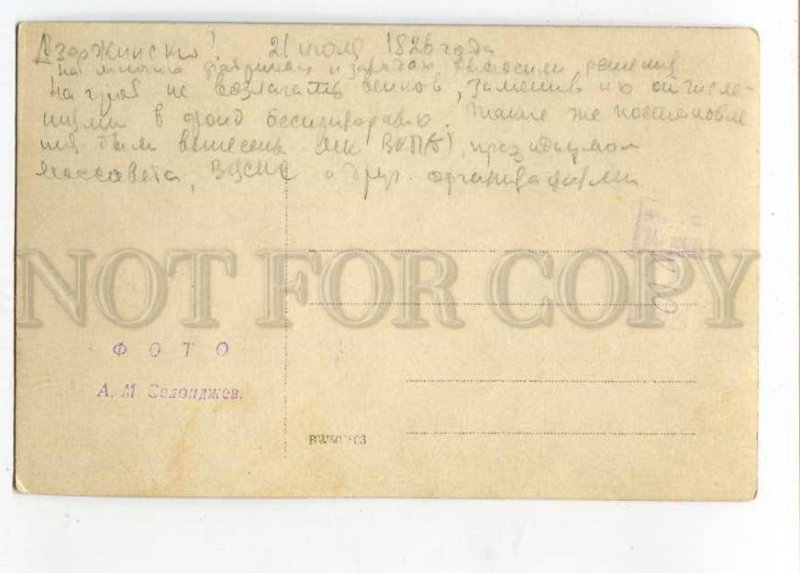 Дзержинский. 21 июля 1926 года
на многих фабриках и заводах выносили решения
на гроб не возлагать венков, заменив их отчисле-
ниями в фонд беспризорных. Такие же постановле
ния были вынесены МК ВКП(б), президиумом
Моссовета, ВЦСПС и друг. организациями
NOT FOR COPY
ФОТО
А. М. Селонджев.